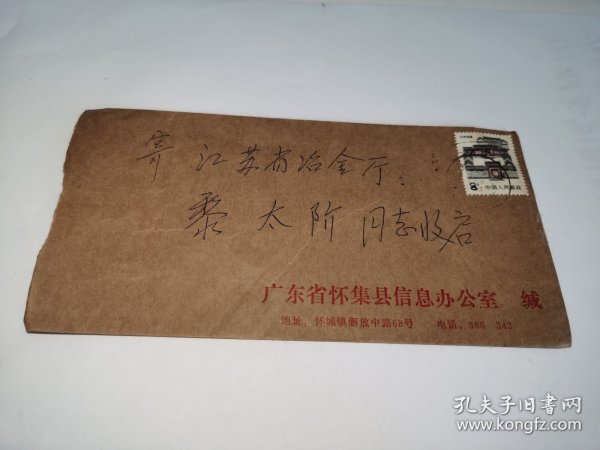 寄 江苏省冶金厅:
黎 太 阶 同志收启
8分 中国人民邮政
广东省怀集县信息办公室 缄
地址:怀城镇解放中路68号 电话:386 342
孔夫子旧书网
www.kongfz.com